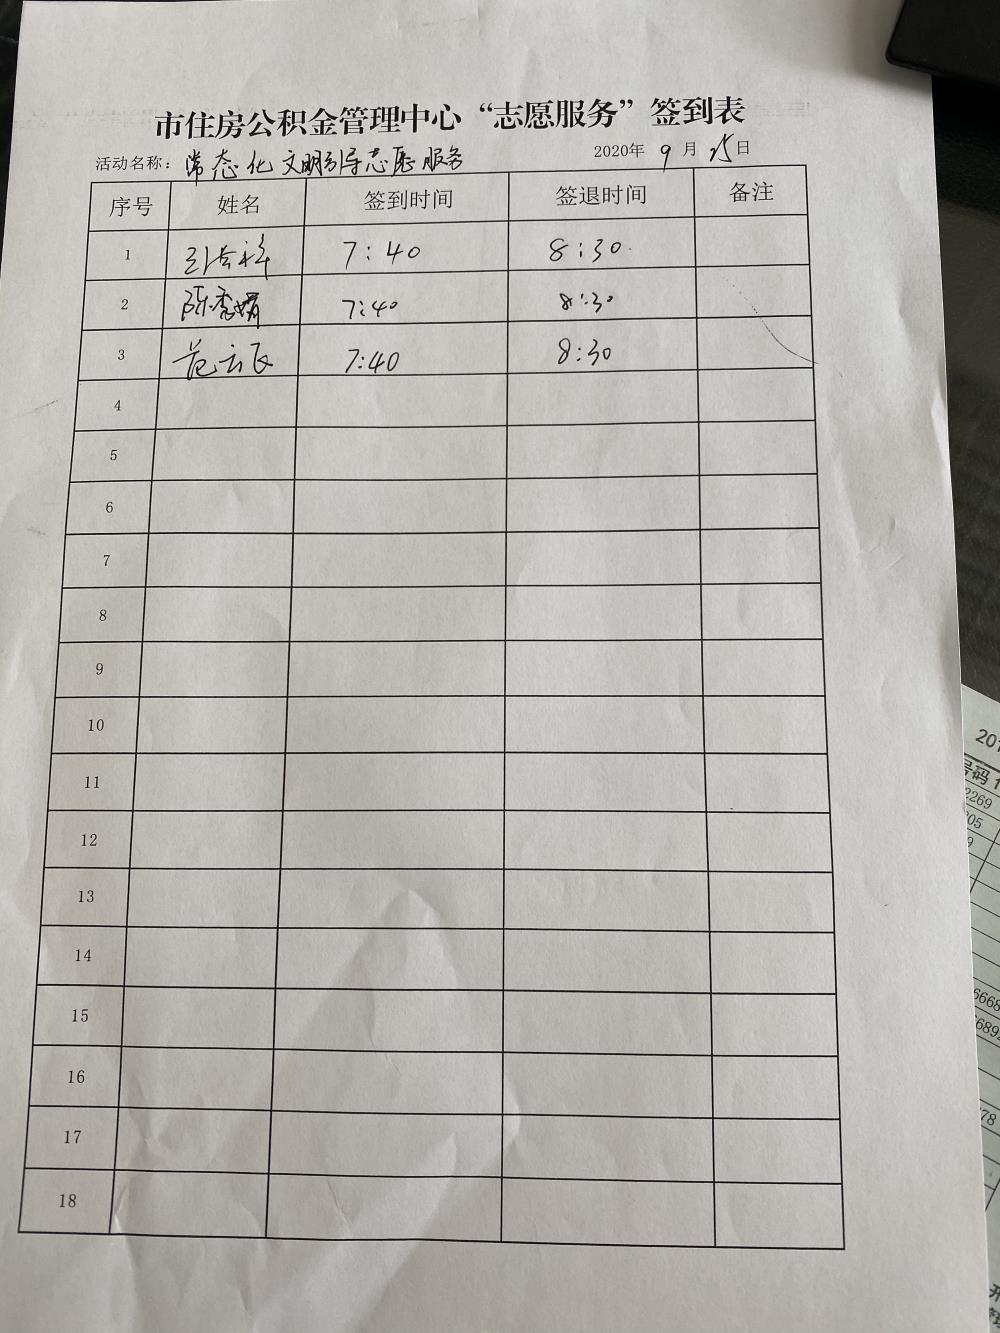 市住房公积金管理中心“志愿服务”签到表
活动名称：常态化文明引导志愿服务 2020年9月25日
序号 姓名 签到时间 签退时间 备注
1 7:40 8:30
2 陈秀娟 7:40 8:30
3 范云飞 7:40 8:30
4
5
6
7
8
9
10
11
12
13
14
15
16
17
18
201
号码1
2269
905
9
6668
6689
78